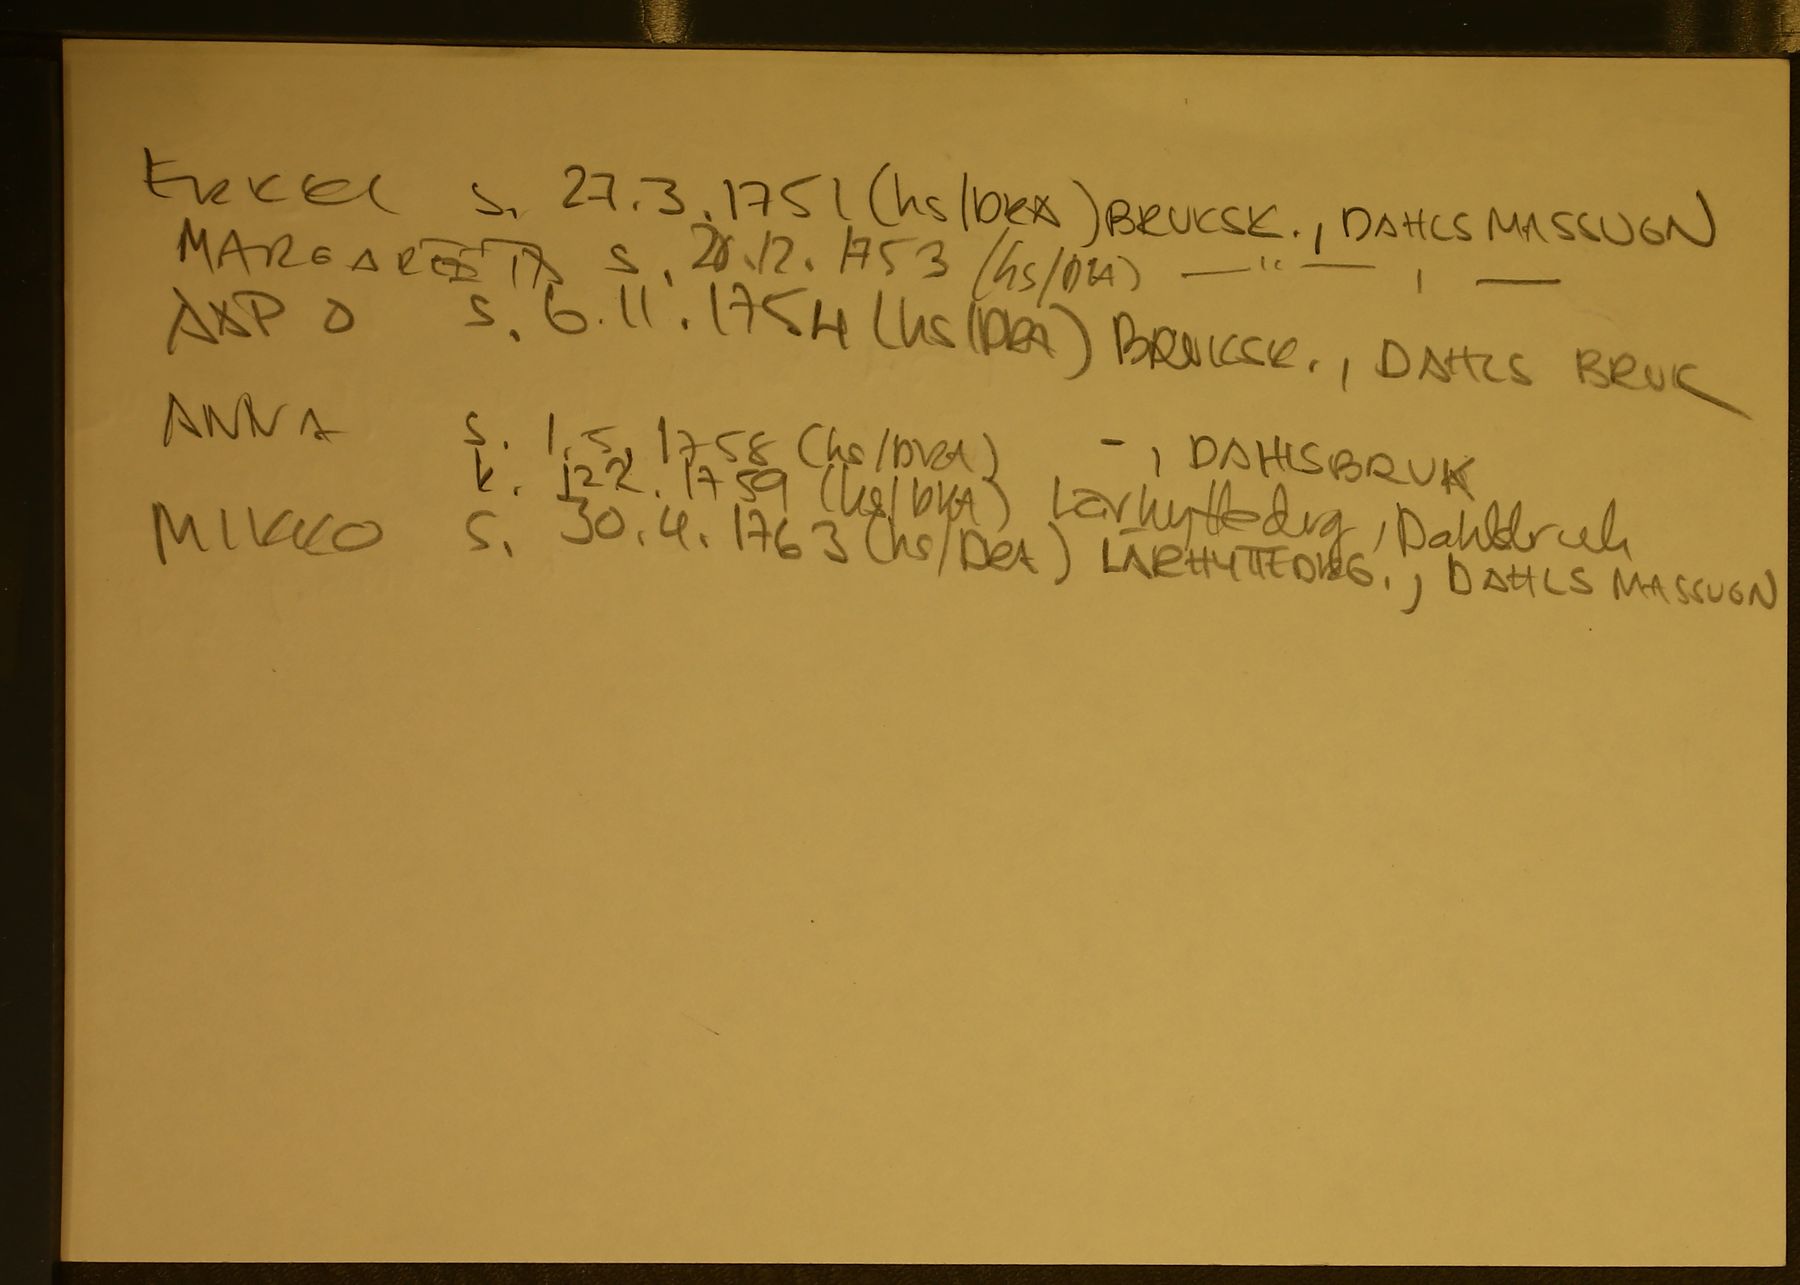 ERKKI s. 27.3.1751 (hs/DRA) BRUKSK., DAHLS MASSUGN
MARGARETA s. 28.12.1753 (hs/DRA) —"— , —
AAPO s. 6.11.1754 (hs/DRA) BRUKSK., DAHLS BRUK
ANNA s. 1.5.1758 (hs/DRA) -, DAHLSBRUK
k. 12.2.1759 (hs/DRA) Lärhyttedrg, Dahlsbruk
MIKKO s. 30.4.1763 (hs/DRA) LÄRHYTTEDRG., DAHLS MASSUGN